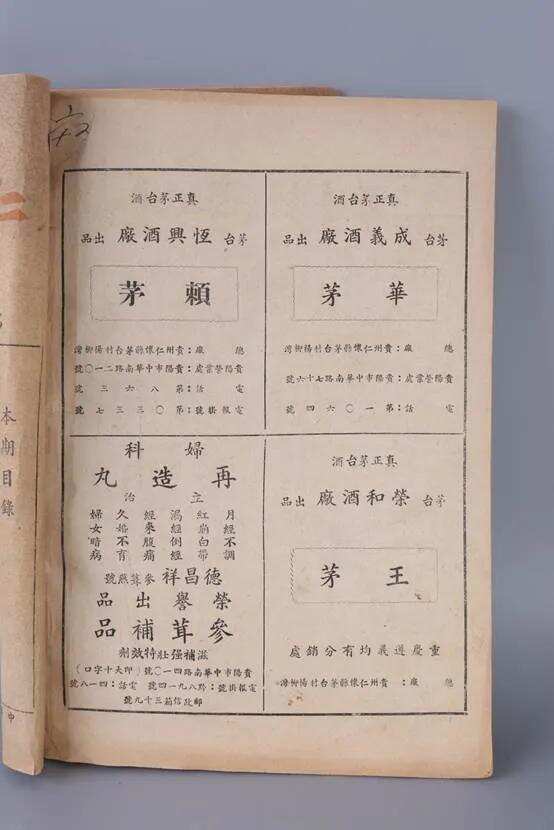 真正茅台酒
茅台 成義酒廠 出品
華茅
總廠：貴州仁懷縣茅台村楊柳灣
貴陽營業處：貴陽市中華南路七十六號
電話：第一〇六四號
真正茅台酒
茅台 恆興酒廠 出品
賴茅
總廠：貴州仁懷縣茅台村楊柳灣
貴陽營業處：貴陽市中華南路二一〇號
電話：第八六三號
電報掛號：第〇三三七號
真正茅台酒
茅台 榮和酒廠 出品
王茅
重慶遵義均有分銷處
總廠：貴州仁懷縣茅台村楊柳灣
婦科
再造丸
立治
月經不調
紅崩白帶
經倒經
經來腹痛
久婚不育
婦女暗病
德昌祥 參茸燕號
榮譽出品
參茸補品
滋補强壯特效劑
貴陽市中華南路四一〇號（即大十字口）
電報掛號：黔八九一四號 電話：四一八號
郵政信箱三十九號
二
本期目錄
中